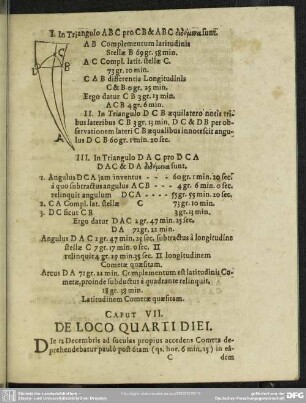 I. In Triangulo A B C pro C B & A B C δεδομένα sunt.
A B Complementum latitudinis
Stellæ B 69 gr. 58 min.
A C Compl. latit. stellæ C.
73 gr. 10 min.
C A B differentia Longitudinis
C & B 0 gr. 25 min.
Ergo datur C B 3 gr. 13 min.
A C B 4 gr. 6 min.
II. In Triangulo D C B æquilatero notis tri-
bus lateribus C B 3 gr. 13 min. D C & D B per ob-
servationem lateri C B æqualibus innotescit angu-
lus D C B 60 gr. 1 min. 20 sec.
C
D
B
A
III. In Triangulo D A C pro D C A
D A C & D A δεδομένα sunt.
1. Angulus D C A jam inventus - - - - 60 gr. 1 min. 20 sec.
à quo subtractus angulus A C B - - - - 4 gr. 6 min. 0 sec.
relinquit angulum D C A - - - - 55 gr. 55 min. 20 sec.
2. C A Compl. lat. stellæ C 73 gr. 10 min.
3. D C sicut C B 3 gr. 13 min.
Ergo datur D A C 2 gr. 47 min. 25 sec.
D A 71 gr. 22 min.
Angulus D A C 2 gr. 47 min. 25 sec. subtractus à longitudine
stellæ C 7 gr. 17 min. 0 sec. II
relinquit 4 gr. 29 min. 35 sec. II longitudinem
Cometæ quæsitam.
Arcus D A 71 gr. 22 min. Complementum est latitudinis Co-
metæ, proinde subductus à quadrante relinquit,
18 gr. 38 min.
Latitudinem Cometæ quæsitam.
CAPUT VII.
DE LOCO QUARTI DIEI.
DIe 12 Decembris ad suculas propius accedens Cometa de-
prehendebatur paulò post 6 tam (hor. 6 min. 15) in eâ-
C
dem